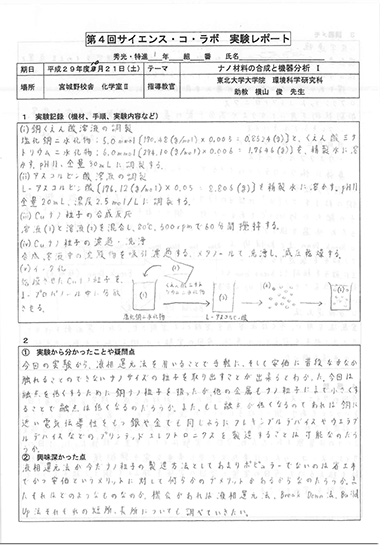 第4回サイエンス・コ・ラボ 実験レポート
秀光・特進 1年 組 番 氏名
期日 平成29年 月21日(土) テーマ ナノ材料の合成と機器分析 Ⅰ
場所 宮城野校舎 化学室Ⅱ 指導教官 東北大学大学院 環境科学研究科
助教 横山 俊 先生
1 実験記録(機材、手順、実験内容など)
(i) 銅くえん酸溶液の調製
塩化銅二水和物: 5.0mmol [170.48(g/mol)×0.005=0.8524(g)]と、くえん酸ミナ
トリウム二水和物: [294.10(g/mol)× を、精製水に溶
かす。pH 、全量30mLに調製する。
(ii) アスコルビン酸溶液の調製
L-アスコルビン酸 [176.12(g/mol)×0.05=8.806(g)]を精製水に溶かす。pH
全量20mL、濃度2.5mol/Lに調製する。
(iii) Cuナノ粒子の合成反応
溶液(i)と溶液(ii)を混合し、80℃、500rpmで60分間攪拌する。
(iv) Cuナノ粒子の濾過・洗浄
合成溶液中の沈殿物を吸引濾過する。メタノールで洗浄し、減圧乾燥する。
(v) インク化
乾燥させたCuナノ粒子を、
2-プロパノールに分散
させる。
2
① 実験から分かったことや疑問点
今日の実験から、液相還元法を用いることで手軽に、そして安価に普段なかなか
触れることのできないナノサイズの粒子を取り出すことが出来ると分かった。今日は
融点を低くするために銅ナノ粒子を扱ったが、他の金属もナノ粒子にまで小さくす
ることで融点は低くなるのだろうか。また、もし融点が低くなるのであれば、銅に
近い電気伝導性をもつ銀や金も同じようにフレキシブルデバイスやウエアラブ
ルデバイスなどのプリンテッドエレクトロニクスを製造することは可能なのだろ
うか。
② 興味深かった点
液相還元法が今だナノ粒子の製造方法としてあまりポピュラーでないのは省エネ
でかつ安価というメリットに対して何らかのデメリットがあるからなのだろうか。
たそれはどのようなものなのか。機会があれば液相還元法、
法それぞれの短所、長所についても調べていきたい。